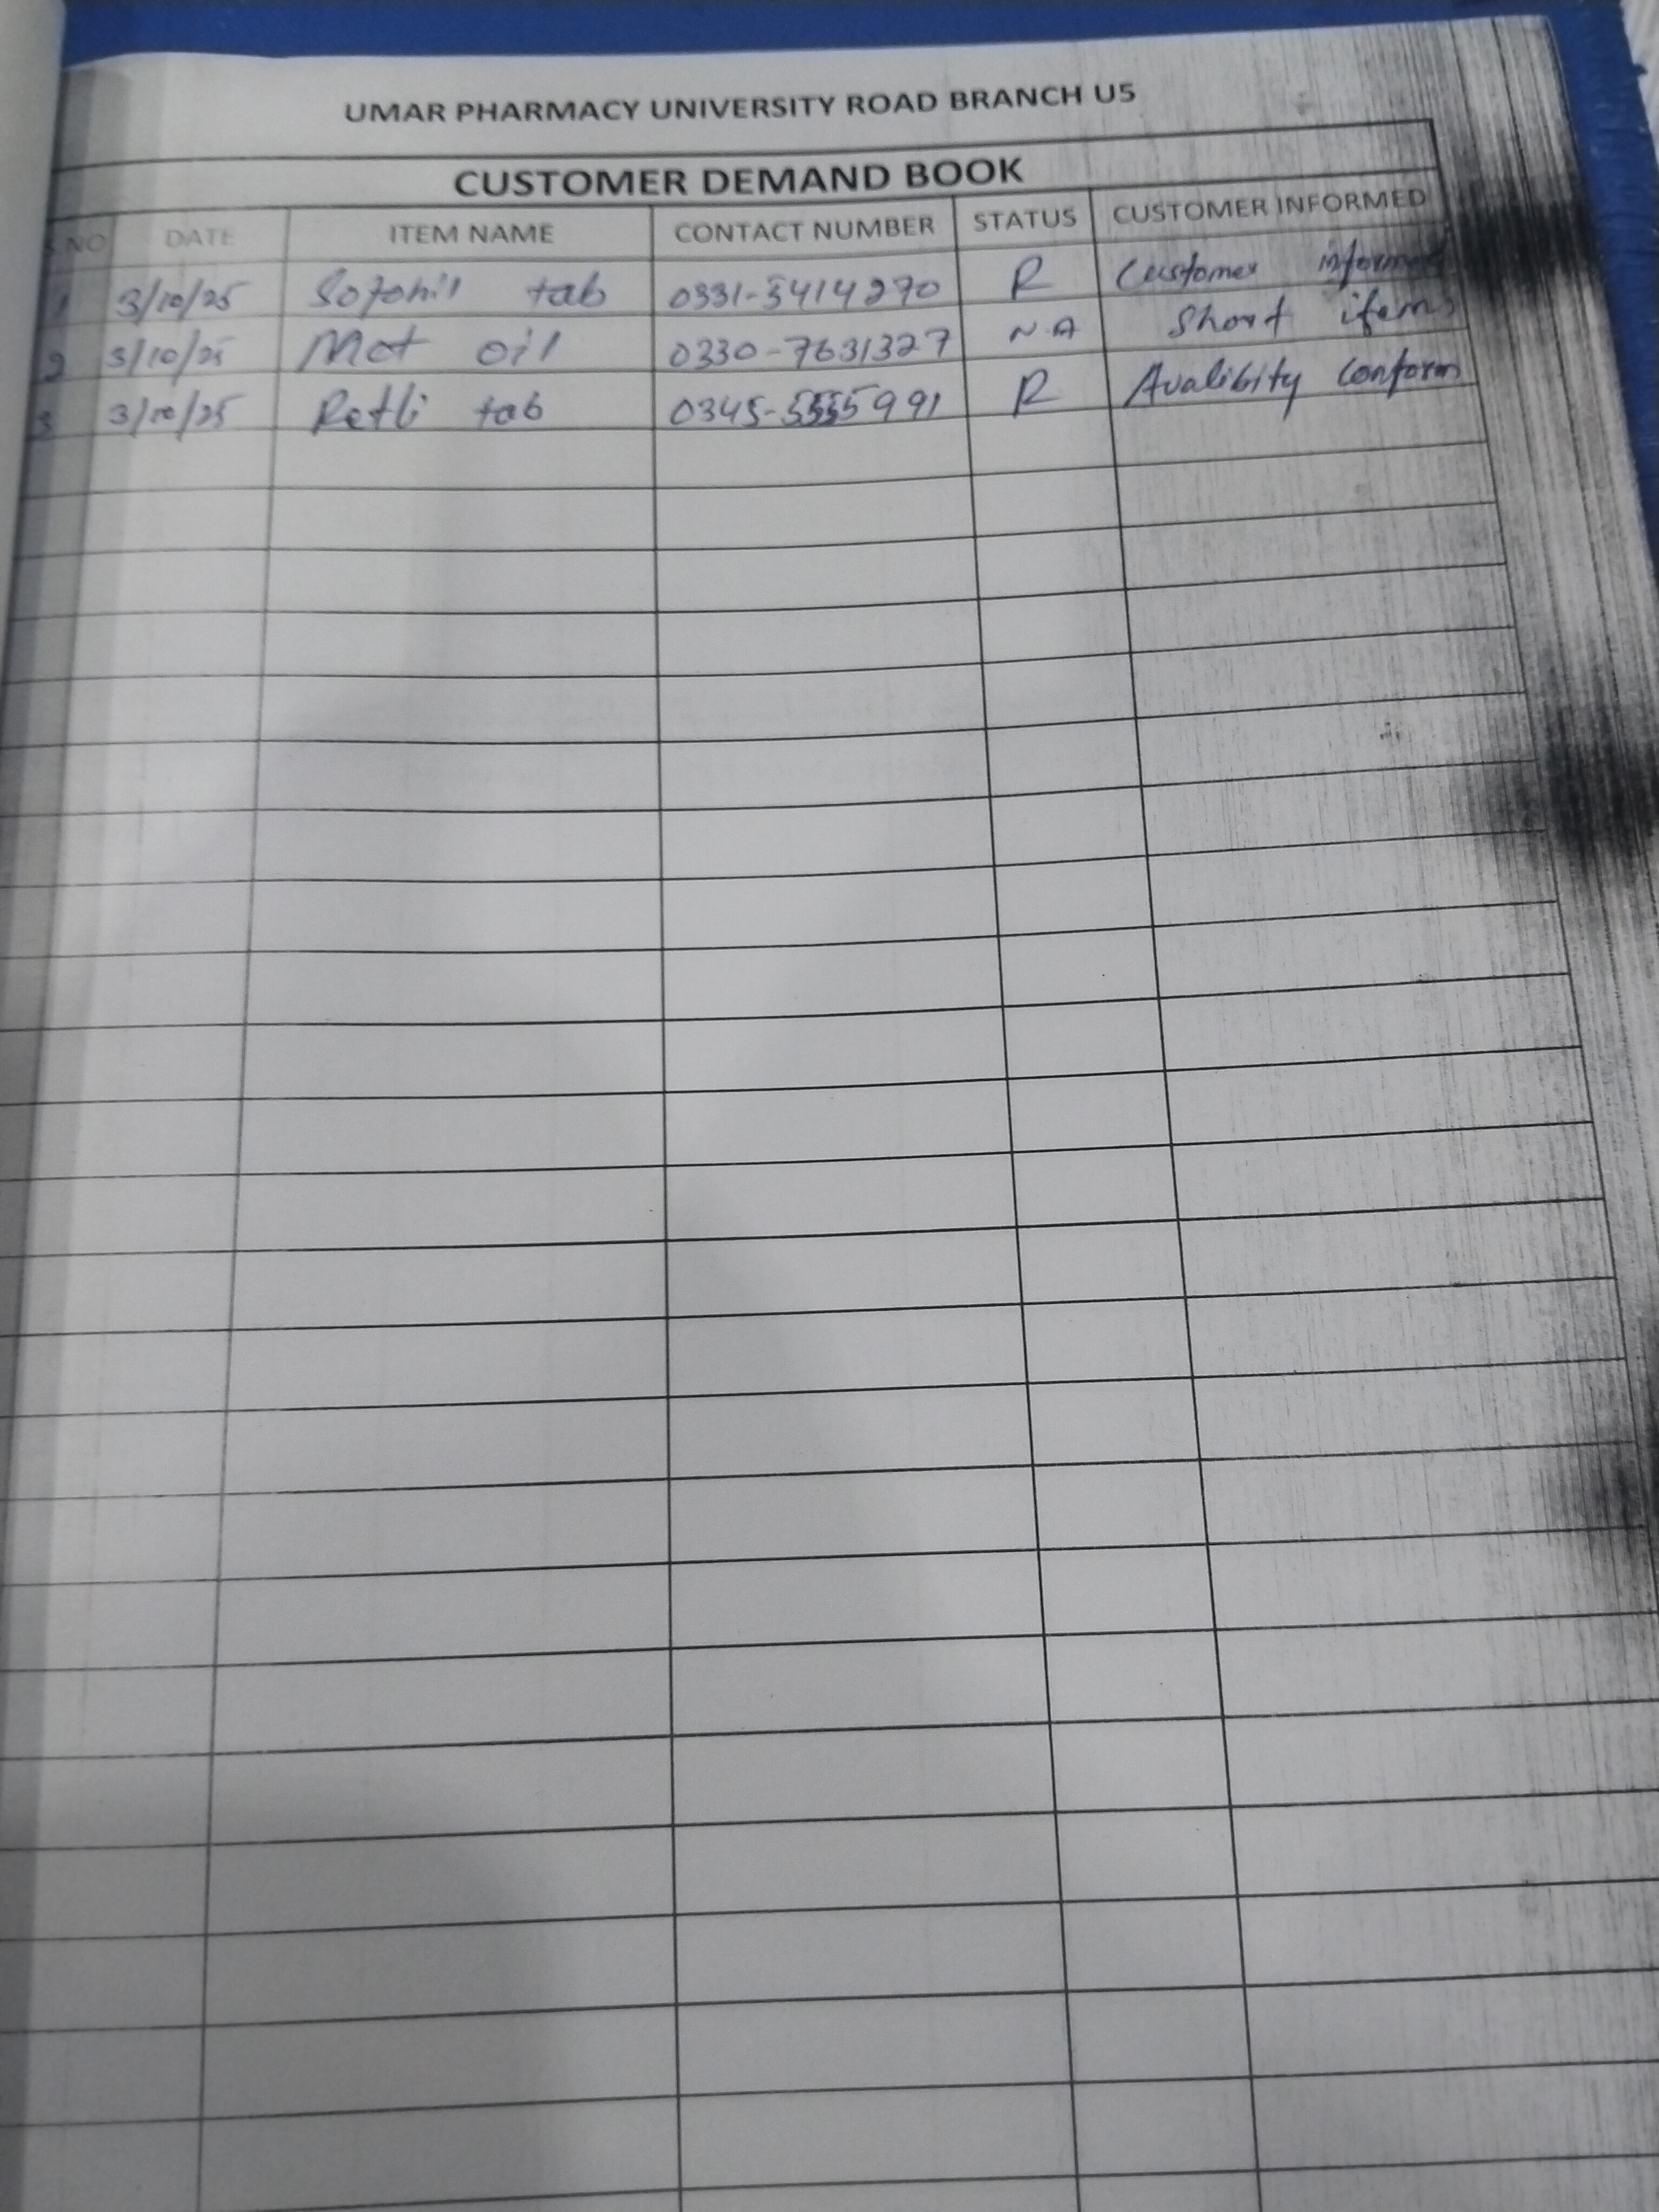 UMAR PHARMACY UNIVERSITY ROAD BRANCH U5
CUSTOMER DEMAND BOOK
S.NO DATE ITEM NAME CONTACT NUMBER STATUS CUSTOMER INFORMED
1 3/10/25 tab 0331-5414270 R Customer informed
2 3/10/25 oil 0330-7631327 N.A Short item
3 3/10/25 tab 0345-5555991 R Avalibity conform